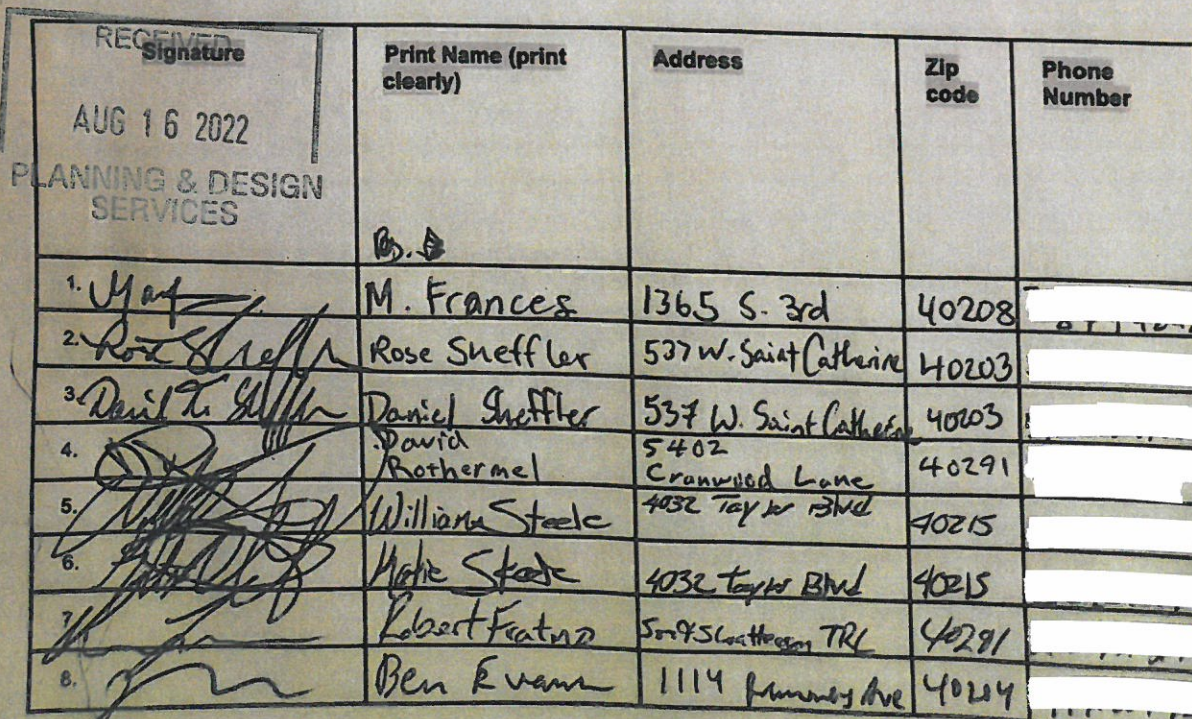 RECEIVED
AUG 16 2022
PLANNING & DESIGN
SERVICES
Signature
Print Name (print
clearly)
Address
Zip
code
Phone
Number
1. M. Frances 1365 S. 3rd 40208
2. Rose Sheffler Rose Sheffler 537 W. Saint Catherine 40203
3. Daniel Sheffler 537 W. Saint Catherine 40203
4. David
Rothermel
5402
Cranwood Lane
40291
5. William Steele 4032 Taylor Blvd 40215
6. Katie Steele 4032 Taylor Blvd 40215
7. Robert TRL 40291
8. Ben Evans 1114 Ave 40204